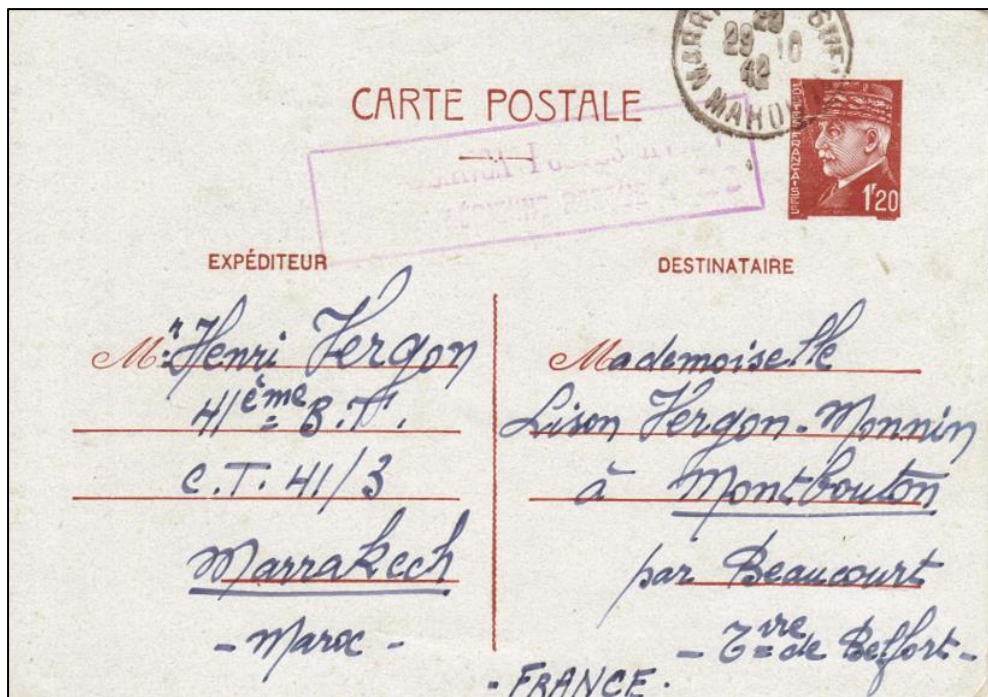 29 10
42
CARTE POSTALE
POSTES FRANÇAISES
1F20
EXPÉDITEUR
Mr Henri Vergon
41ème B.T.
C.T. 41/3
Marrakech
- Maroc -
DESTINATAIRE
Mademoiselle
Lison Vergon-Monnin
à Montbouton
par Beaucourt
- Tire de Belfort -
- FRANCE -